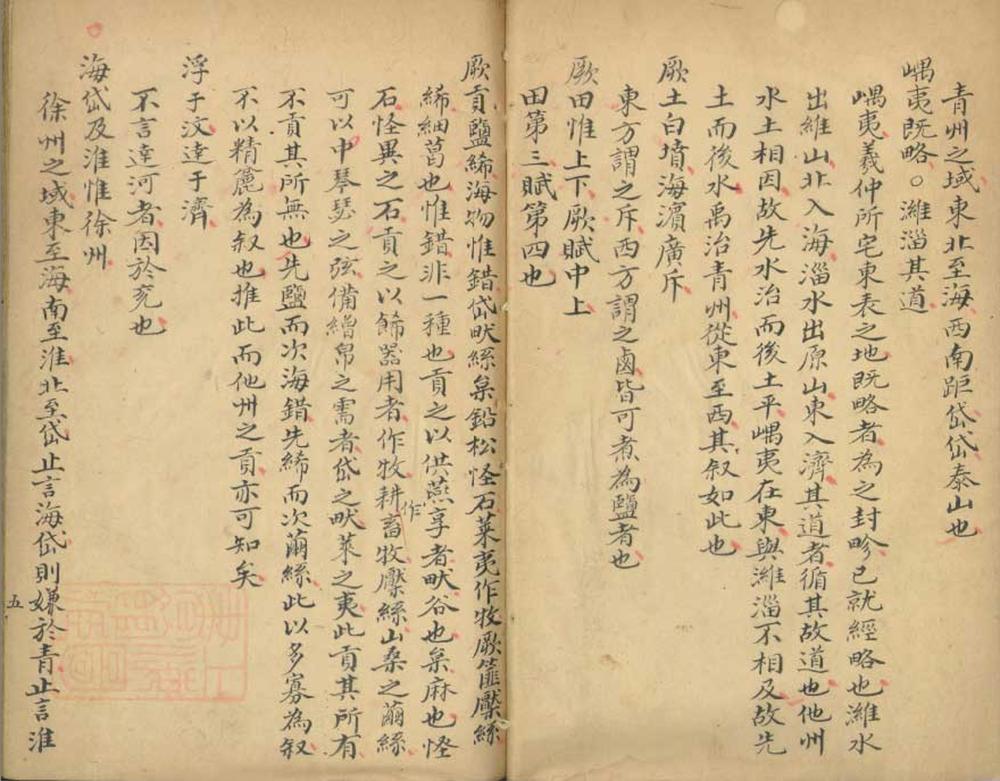 青州之域東北至海西南距岱岱泰山也
嵎夷既略○濰淄其道
嵎夷羲仲所宅東表之地既略者為之封畛已就經略也濰水
出維山北入海淄水出原山東入濟其道者循其故道也他州
水土相因故先水治而後土平嵎夷在東與濰淄不相及故先
土而後水禹治青州從東至西其叙如此也
厥土白墳海濱廣斥
東方謂之斥西方謂之鹵皆可煮為鹽者也
厥田惟上下厥賦中上
田第三賦第四也
厥貢鹽絺海物惟錯岱畎絲枲鉛松怪石萊夷作牧厥篚檿絲
絺細葛也惟錯非一種也貢之以供燕享者畎谷也枲麻也怪
石怪異之石貢之以餙器用者作牧耕作畜牧檿絲山桑之繭絲
可以中琴瑟之弦備繒帛之需者岱之畎萊之夷此貢其所有
不貢其所無也先鹽而次海錯先絺而次繭絲此以多寡為叙
不以精麄為叙也推此而他州之貢亦可知矣
浮于汶達于濟
不言達河者因於兖也
海岱及淮惟徐州
徐州之域東至海南至淮北至岱止言海岱則嫌於青止言淮
五